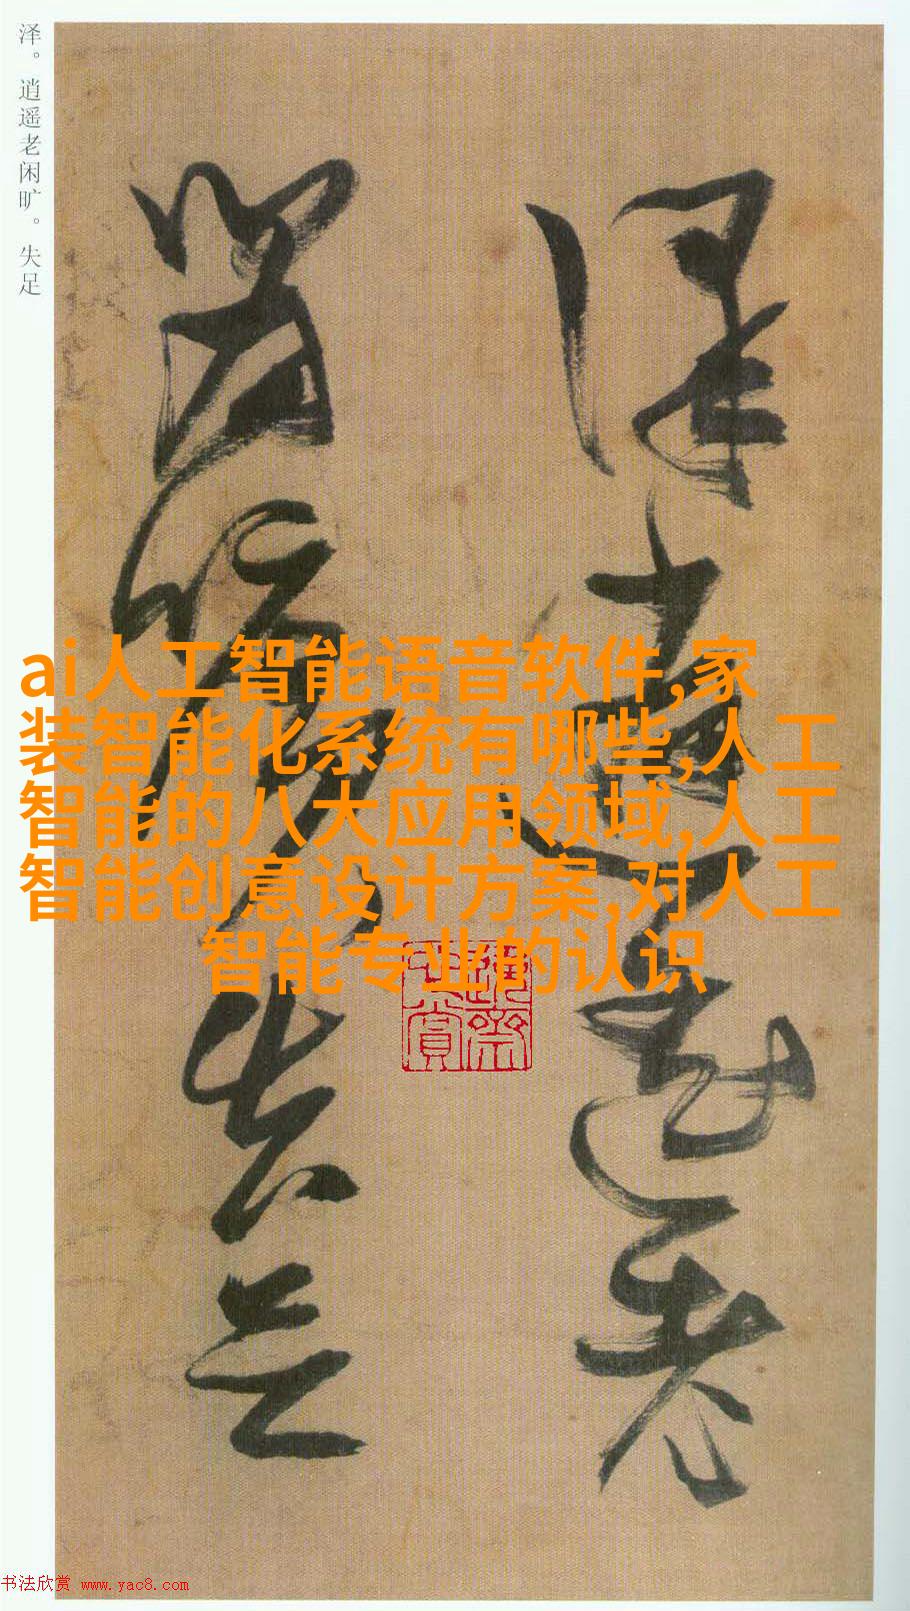 泽。逍遥老闲旷。失足
泽逍遥老
闲旷失足
ai人工智能语音软件,家
装智能化系统有哪些,人工
智能的八大应用领域,人工
智能创意设计方案,对人工
智能专业的认识
书法欣赏 www.yac8.com